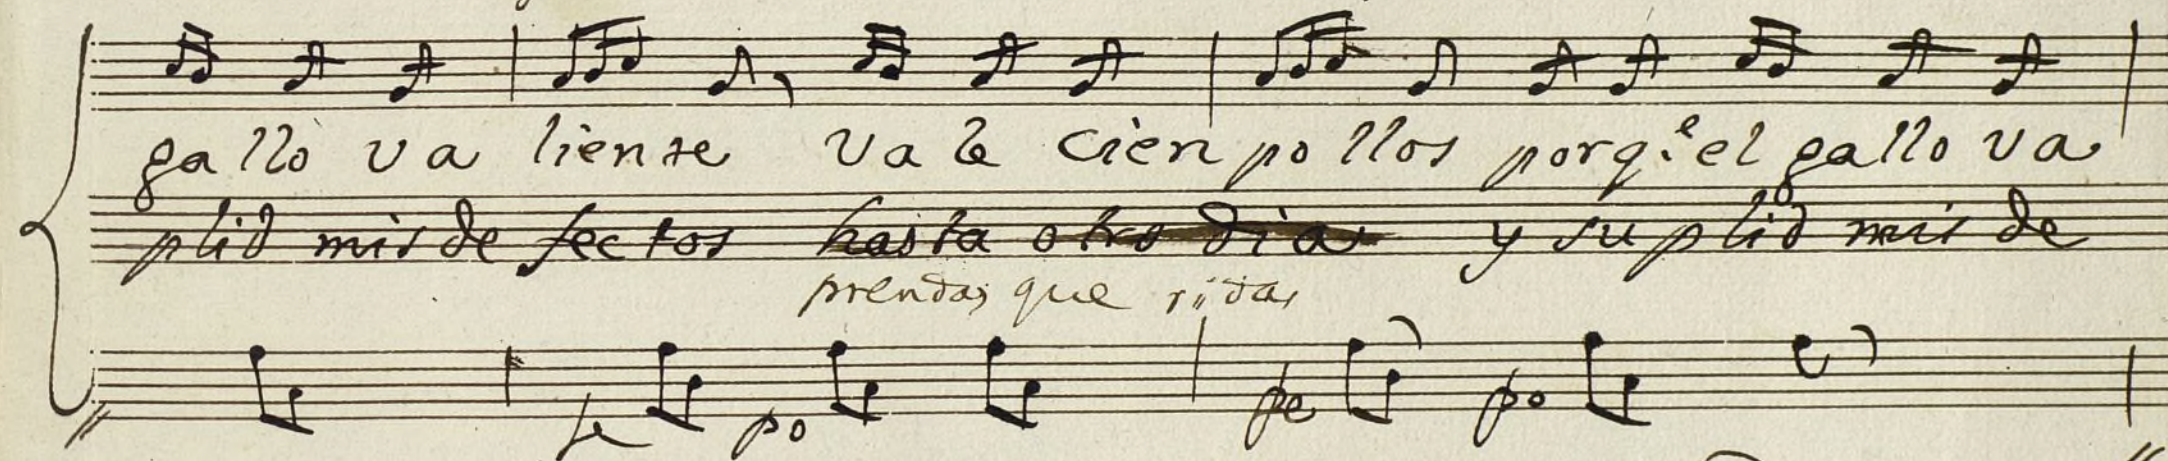 gallo va liente vale cien pollos porq.e el gallo va
plid mis de fectos hasta otro dia y suplid mis de
prendas que ridas
fe po fe po